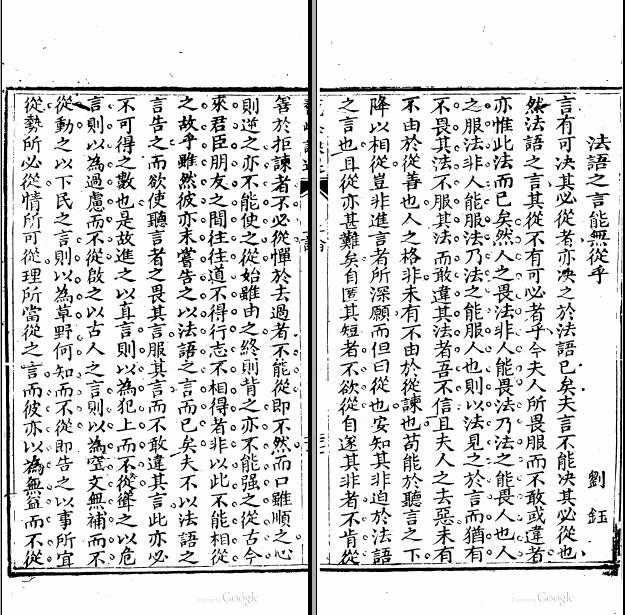 法語之言能無從乎
劉鈺
言有可决其必從者亦决之於法語已矣夫言不能决其必從也
然法語之言其從不有可必者乎今夫人所畏服而不敢或違者
亦惟此法而已矣然人之畏法非人能畏法乃法之能畏人也人
之服法非人能服法乃法之能服人也則以法見之於言而猶有
不畏其法不服其法而敢違其法者吾不信且夫人之去惡未有
不由於從善也人之格非未有不由於從諫也苟能於聽言之下
降以相從豈非進言者所深願而但曰從也安知其非迫於法語
之言也且從亦甚難矣自匿其短者不欲從自遂其非者不肯從
善於拒諫者不必從憚於去過者不能從即不然而口雖順之心
則逆之亦不能使之從始雖由之終則背之亦不能强之從古今
來君臣朋友之間往往道不得行志不相得者非以此不能相從
之故乎雖然彼亦未嘗告之以法語之言而已矣夫不以法語之
言告之而欲使聽言者之畏其言服其言而不敢違其言此亦必
不可得之數也是故進之以直言則以為犯上而不從聳之以危
言則以為過慮而不從啟之以古人之言則以為空文無補而不
從動之以下民之言則以為草野何知而不從即告之以事所宜
從勢所必從情所可從理所當從之言而彼亦以為無益而不從
Google
Google